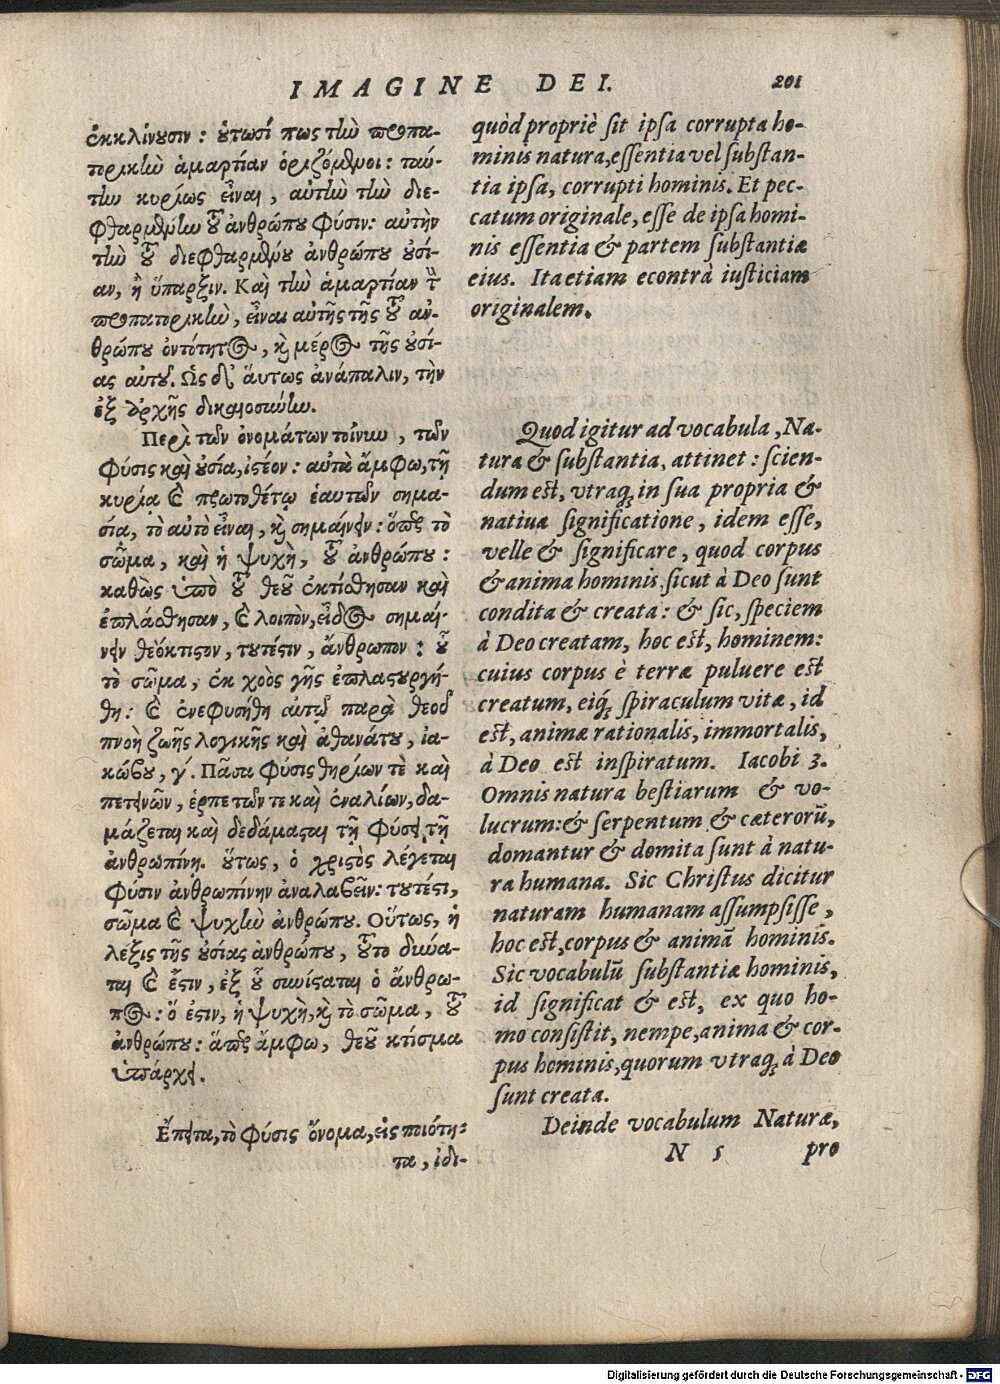 IMAGINE DEI. 201
ἐκκλίνουσιν: οὑτωσί πως τὴν προπα-
τορικὴν ἁμαρτίαν ὁριζόμενοι: ταύ-
την κυρίως εἶναι, αὐτὴν τὴν διε-
φθαρμένην τοῦ ἀνθρώπου φύσιν: αὐτὴν
τὴν τοῦ διεφθαρμένου ἀνθρώπου οὐσί-
αν, ἢ ὕπαρξιν. Καὶ τὴν ἁμαρτίαν τὴν
προπατορικὴν, εἶναι αὐτῆς τῆς τοῦ ἀν-
θρώπου ὀντότητος, καὶ μέρος τῆς οὐσί-
ας αὐτοῦ. Ὡς δ' αὕτως ἀνάπαλιν, τὴν
ἐξ ἀρχῆς δικαιοσύνην.
Περὶ τῶν ὀνομάτων τοίνυν, τῶν
φύσις καὶ οὐσία, ἰστέον: αὐτὰ ἄμφω, τῇ
κυρίᾳ καὶ πρωτοθέτῳ ἑαυτῶν σημα-
σίᾳ, τὸ αὐτὸ εἶναι, καὶ σημαίνειν: ὅπερ τὸ
σῶμα, καὶ ἡ ψυχὴ, τοῦ ἀνθρώπου:
καθὼς ὑπὸ τοῦ θεοῦ ἐκτίσθησαν καὶ
ἐπλάσθησαν, καὶ λοιπὸν, εἶδος σημαί-
νειν θεόκτιστον, τουτέστιν, ἄνθρωπον: οὗ
τὸ σῶμα, ἐκ χοὸς γῆς ἐπλαστουργή-
θη: καὶ ἐνεφυσήθη αὐτῷ παρὰ θεοῦ
πνοὴ ζωῆς λογικῆς καὶ ἀθανάτου, ἰα-
κώβου, γ'. Πᾶσα φύσις θηρίων τὲ καὶ
πετεινῶν, ἑρπετῶν τε καὶ ἐναλίων, δα-
μάζεται καὶ δεδάμασται τῇ φύσει τῇ
ἀνθρωπίνῃ. οὕτως, ὁ χριστὸς λέγεται
φύσιν ἀνθρωπίνην ἀναλαβεῖν: τουτέστι,
σῶμα καὶ ψυχὴν ἀνθρώπου. Οὕτως, ἡ
λέξις τῆς οὐσίας ἀνθρώπου, τοῦτο δύνα-
ται καὶ ἔστιν, ἐξ οὗ συνίσταται ὁ ἄνθρω-
πος: ὅ ἐστιν, ἡ ψυχὴ, καὶ τὸ σῶμα, τοῦ
ἀνθρώπου: ἅπερ ἄμφω, θεοῦ κτίσμα
ὑπάρχει.
Ἔπειτα, τὸ φύσις ὄνομα, εἰς ποιότη-
τα, ἰδι-
quòd propriè sit ipsa corrupta ho-
minis natura, essentia vel substan-
tia ipsa, corrupti hominis. Et pec-
catum originale, esse de ipsa homi-
nis essentia & partem substantiæ
eius. Ita etiam econtrà iusticiam
originalem.
Quod igitur ad vocabula, Na-
tura & substantia, attinet: scien-
dum est, vtraq; in sua propria &
natiua significatione, idem esse,
velle & significare, quod corpus
& anima hominis, sicut à Deo sunt
condita & creata: & sic, speciem
à Deo creatam, hoc est, hominem:
cuius corpus è terræ puluere est
creatum, eiq; spiraculum vitæ, id
est, animæ rationalis, immortalis,
à Deo est inspiratum. Iacobi 3.
Omnis natura bestiarum & vo-
lucrum: & serpentum & cæterorū,
domantur & domita sunt à natu-
ra humana. Sic Christus dicitur
naturam humanam assumpsisse,
hoc est, corpus & animā hominis.
Sic vocabulū substantiæ hominis,
id significat & est, ex quo ho-
mo consistit, nempe, anima & cor-
pus hominis, quorum vtraq; à Deo
sunt creata.
Deinde vocabulum Naturæ,
N 5 pro
Digitalisierung gefördert durch die Deutsche Forschungsgemeinschaft - DFG